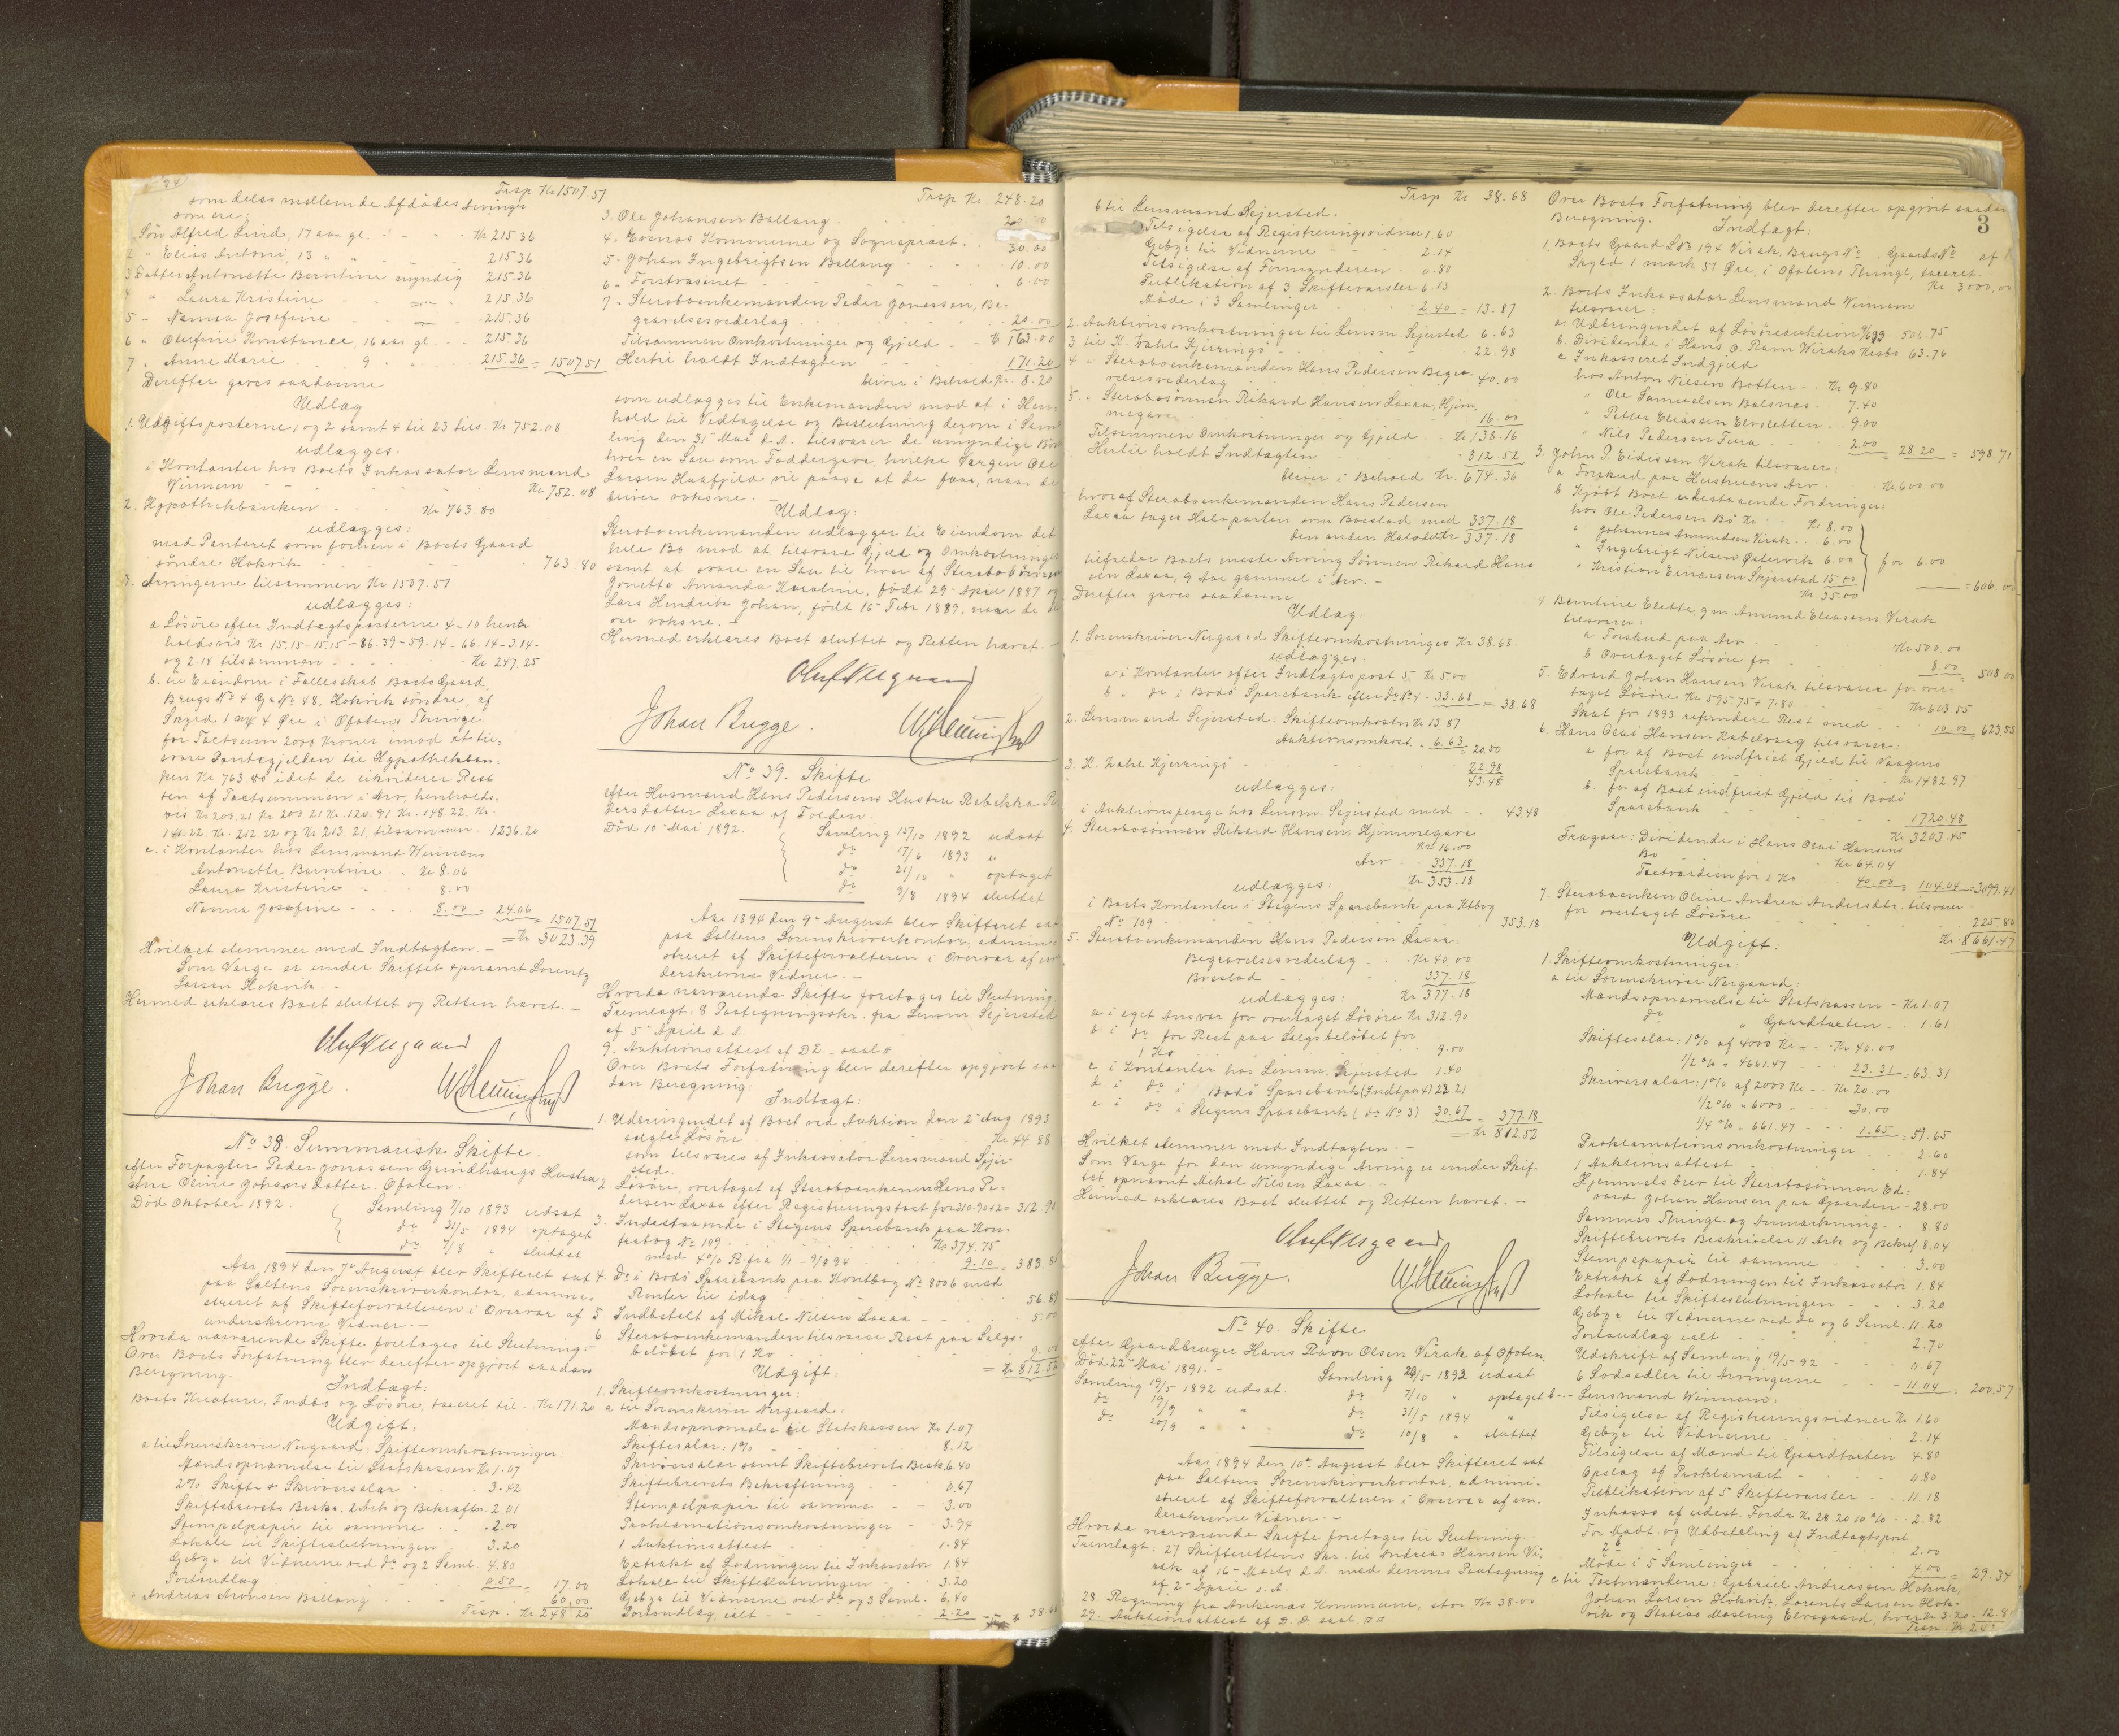 24
Trsp Kr 1507.51
som deles mellem de Afdødes Arvinger
som ere:
Søn Alfred Lind, 17 aar gl. - - - Kr 215.36
2 " Elias Antoni, 13 " " 215.36
3 Datter Antonette Berntine myndig 215.36
4 " Laura Kristine 215.36
5 " Nanna Josefine 215.36
6 " Olufine Konstance, 16 aar gl. 215.36
7 " Anne Marie 9 215.36 = 1507.51
Derefter gjøres saadanne
Udlæg
1. Udgiftsposterne 1 og 2 samt 4 til 23 tils. Kr 752.08
udlægges:
i Kontanter hos Boets Inkassator Lensmand
Winnem Kr 752.08
2. Hypothekbanken Kr 763.80
udlægges:
med Panteret som forhen i Boets Gaard
søndre Hokvik 763.80
3. Arvingerne tilsammen Kr 1507.51
udlægges:
a Løsøre efter Indtægtsposterne 4-10 hen-
holdsvis Kr 15.15-15.15-86.39-59.14-66.14-3.14-
og 2.14 tilsammen Kr 247.25
b. til Eiendom i Fællesskab Boets Gaard,
Brugs No 4 Ga No 48, Hokvik søndre, af
Skyld 1 4 Øre i Ofotens Thinge
for Taxtsum 2000 Kroner imod at til-
svare Pantegjælden til Hypothekban-
ken Kr 763.80 idet de likviderer Res-
ten af Taxtsummen i Arv, henholds-
vis Kr 200.21 Kr 200.21 Kr. 120.91 Kr. 148.22 Kr.
141.22 Kr. 212.22 og Kr 213.21, tilsammen 1236.20
c. i Kontanter hos Lensmand Winnem
Antonette Berntine - Kr 8.06
Laura Kristine 8.00
Nanna Josefine 8.00 = 24.06
= 1507.51
= Kr 3023.39
Hvilket stemmer med Indtægten. -
Som Værge er under Skiftet opnævnt Lorentz
Larsen Hokvik. -
Hermed erklæres Boet sluttet og Retten hævet. -
Oluf Nergaard
Johan Bugge.
No 38. Summarisk Skifte.
efter Forpagter Peder Jonassen Grundhaugs Hustru
Stine Oline Johansdatter. Ofoten.
Død Oktober 1892.
Samling 7/10 1893 udsat
do 31/5 1894 optaget
do 7/8 " sluttet
Aar 1894 den 7de August blev Skifteret sat
paa Saltens Sorenskriverkontor, admini-
streret af Skifteforvalteren i Overvær af
underskrevne Vidner. -
Hvorda nærværende Skifte foretages til Slutning
Over Boets Forfatning blev derefter opgjort saadan
Beregning.
Indtægt:
Boets Kreature, Indbo og Løsøre, taxeret til - Kr 171.20
Udgift:
a til Sorenskriver Nergaard: Skifteomkostninger:
Mandsopnævnelse til Statskassen Kr 1.07
2% Skifte & Skriversalær 3.42
Skiftebrevets Beskr. 2 Ark og Bekræftn. 2.01
Stempelpapir til samme 2.00
Lokale til Skifteslutningen 3.20
Gebyr til Vidnerne ved do og 2 Saml. 4.80
Portoudlæg 0.50 = 17.00
Andreas Aronsen Ballang 60.00
Trsp. Kr 248.20
Trsp Kr. 248.20
3. Ole Johansen Ballang 20.00
4. Evenæs Kommune og Sogneprest. 30.00
5. Johan Ingebrigtsen Ballang 10.00
6. Forstvæsenet 6.00
7. Sterboenkemanden Peder Jonassen, Be-
gravelsesvederlag 20.00
Tilsammen Omkostninger og Gjæld Kr 163.00
Hertil holdt Indtægten 171.20
bliver i Behold Kr. 8.20
som udlægges til Enkemanden mod at i Hen-
hold til Vedtagelse og Beslutning derom i Sam-
ling den 31 Mai d.A. tilsvarer de umyndige Børn
hver en Sau som Faddergave, hvilke Værgen Ole
Larsen Haafjeld vil paase at de faar, naar de
bliver voksne. -
Udlæg:
Sterboenkemanden udlægges til Eiendom det
hele Bo mod at tilsvare Gjæld og Omkostninger
samt at svare en Sau til hver af Sterbobørnene
Jonette Amanda Karoline, født 29 April 1887 og
Lars Hendrik Johan, født 15 Febr 1889, naar de bli-
ver voksne. -
Hermed erklæres Boet sluttet og Retten hævet. -
Oluf Nergaard
Johan Bugge.
No 39. Skifte
efter Husmand Hans Pedersens Hustru Rebekka Pe-
dersdatter Laxaa af Folden.
Død 10 Mai 1892.
Samling 15/10 1892 udsat
do 17/6 1893 "
do 21/10 " optaget
do 9/8 1894 sluttet
Aar 1894 den 9de August blev Skifteret sat
paa Saltens Sorenskriverkontor, admini-
streret af Skifteforvalteren i Overvær af un-
derskrevne Vidner. -
Hvorda nærværende Skifte foretages til Slutning.
Fremlagt: 8 Paategningsskr. fra Lensm. Sejersted
af 5 April d.A.
9. Auktionsattest af D.D. saal:
Over Boets Forfatning blev derefter opgjort saa-
dan Beregning:
Indtægt:
1. Udbringendet af Boet ved Auktion den 2 Aug 1893
solgte Løsøre Kr 44.88
som tilsvares af Inkassator Lensmand Sejer-
sted.
2. Løsøre, overtaget af Sterboenkemanden Hans Pe-
dersen Laxaa efter Registreringstaxt for 310.90+2 = 312.90
3. Indestaaende i Stegens Sparebank paa Kon-
trabog No 109 Kr 374.75
med 4% R. fra 1/1 - 9/8 94 9.10 = 383.85
4. Do i Bodø Sparebank paa Kontbog No 8006 med
Renter til idag 56.89
5. Indbetalt af Mikal Nilsen Laxaa 5.00
6 Sterboenkemanden tilsvarer Rest paa Salgs-
beløbet for 1 Ko 9.00
= Kr 812.52
Udgift:
1. Skifteomkostninger:
a til Sorenskriver Nergaard:
Mandsopnævnelse til Statskassen Kr 1.07
Skiftesalær: 1% 8.12
Skriversalær samt Skiftebrevets Besk. 6.40
Skiftebrevets Bekræftning 0.67
Stempelpapir til samme 3.00
Proklamationsomkostninger 3.94
1 Auktionsattest 1.84
Extrakt af Lodningen til Inkassator 1.84
Lokale til Skifteslutningen 3.20
Gebyr til Vidnerne ved do og 3 Saml. 6.40
Portoudlæg, ialt 2.20 = 38.68
Trsp Kr 38.68
b til Lensmand Sejersted.
Tilsigelse af Registreringsvidner 1.60
Gebyr til Vidnerne 2.14
Tilsigelse af Formynderen 0.80
Publikation af 3 Skiftevarsler 6.13
Møde i 3 Samlinger 2.40 = 13.87
2. Auktionsomkostninger til Lensm. Sejersted 6.63
3 til K. Zahl Kjerringø 22.98
4 " Sterboenkemanden Hans Pedersen Begra-
velsesvederlag 40.00
5. " Sterbosønnen Rikard Hansen Laxaa, Hjem-
megave 16.00
Tilsammen Omkostninger og Gjæld Kr. 138.16
Hertil holdt Indtægten 812.52
bliver i Behold Kr. 674.36
hvoraf Sterboenkemanden Hans Pedersen
Laxaa tages Halvparten som Boeslod med 337.18
den anden Halvdel Kr 337.18
tilfalder Boets eneste Arving Sønnen Rikard Han-
sen Laxaa, 9 Aar gammel i Arv. -
Derefter gjøres saadanne
Udlæg.
1. Sorenskriver Nergaard Skifteomkostninger Kr 38.68
udlægges.
a i Kontanter efter Indtægtspost 5 Kr 5.00
b " do i Bodø Sparebank efter do No 4 - 33.68 = 38.68
2. Lensmand Sejersted: Skifteomkostn Kr 13.87
Auktionsomkost. " 6.63 = 20.50
3. K. Zahl Kjerringø 22.98
43.48
udlægges:
i Auktionspenge hos Lensm. Sejersted med 43.48
4. Sterbosønnen Rikard Hansen, Hjemmegave
Kr 16.00
Arv 337.18
Kr 353.18
udlægges:
i Boets Kontanter i Stegens Sparebank paa Ktbog
No 109 353.18
5. Sterboenkemanden Hans Pedersen Laxaa.
Begravelsesvederlag Kr 40.00
Boeslod 337.18
udlægges: Kr 377.18
a i eget Ansvar for overtaget Løsøre Kr 312.90
b i do for Rest paa Salgsbeløbet for
1 Ko 9.00
c i Kontanter hos Lensm. Sejersted 1.40
d i do i Bodø Sparebank (Indtpost) 23.21
e i do i Stegens Sparebank (do No 3) 30.67 = 377.18
= Kr 812.52
Hvilket stemmer med Indtægten. -
Som Værge for den umyndige Arving er under Skif-
tet opnævnt Mikal Nilsen Laxaa. -
Hermed erklæres Boet sluttet og Retten hævet. -
Oluf Nergaard
Johan Bugge.
No 40. Skifte
efter Gaardbruger Hans Ravn Olsen Virak af Ofoten.
Død 22 Mai 1891. -
Samling 19/5 1892 udsat. Samling 29/5 1892 udsat
do 19/9 " " do 7/10 " optaget
do 20/9 " " do 31/5 1894 "
do 10/8 " sluttet
Aar 1894 den 10de August blev Skifteret sat
paa Saltens Sorenskriverkontor, admini-
streret af Skifteforvalteren i Overvær af un-
derskrevne Vidner. -
Hvorda nærværende Skifte foretages til Slutning.
Fremlagt: 27 Skifterettens Skr. til Andreas Hansen Vi-
rak af 16 Marts d.A. med dennes Paategning
af 2 April s.A.
28. Regning fra Ankenæs Kommune, stor Kr 38.00
29. Auktionsattest af D.D. saal.
3
Over Boets Forfatning blev derefter opgjort saadan
Beregning. Indtægt:
1. Boets Gaard LNo 194 Virak, Brugs No Gaards No af
Skyld 1 mark 51 Øre, i Ofotens Thingl, taxeret
Kr 3000.00
2. Boets Inkassator Lensmand Winnem
tilsvarer:
a Udbringendet af Løsøreauktion 506.75
b. Dividende i Hans O. Ravn Viraks Kesbo 63.76
c Inkasseret Indgjæld
hos Anton Nilsen Botten Kr 9.80
" Ole Samuelsen Balsnæs 7.40
" Petter Eliassen Elvesletten 9.00
" Nils Pedersen Fura 2.00 = 28.20 = 598.71
3. John P. Eidissen Virak tilsvarer:
a Forskud paa Hustruens Arv Kr 600.00
b Kjøbt Boet udestaaende Fordringer:
hos Ole Pedersen Bø Kr 8.00
" Johannes Amundsen Virak 6.00
" Ingebrigt Nilsen Østervik 6.00 for 6.00
" Kristian Einarsen Skjerstad 15.00
Kr 35.00 = 606.00
4 Berntine Elette gm Amund Eliassen Virak
tilsvarer:
a Forskud paa Arv Kr 500.00
b Overtaget Løsøre for 8.00 = 508.00
5. Edvard Johan Hansen Virak tilsvarer for over-
taget Løsøre Kr 595.75 + 7.80 Kr 603.55
Skat for 1893 refundere Rest med 10.00 = 623.55
6. Hans Olai Hansen Kabelvaag tilsvarer:
a for af Boet indfriet Gjæld til Vaagens
Sparebank Kr 1482.97
b. for af Boet indfriet Gjæld til Bodø
Sparebank 1720.48
Kr 3203.45
Fragaar: Dividende i Hans Olai Hansens
Bo Kr 64.04
Taxtværdien for 1 Ko 40.00 = 104.04 = 3099.41
7. Sterboenken Oline Andrea Andersdtr. tilsvarer
for overtaget Løsøre 225.80
Kr. 8661.47
Udgift:
1. Skifteomkostninger:
a til Sorenskriver Nergaard:
Mandsopnævnelse til Statskassen - Kr 1.07
do " Gaardtaxten - 1.61
Skiftesalær: 1% af 4000 Kr - Kr 40.00
1/2% " 4661.47 23.31 = 63.31
Skriversalær: 1% af 2000 Kr - Kr 20.00
1/2% " 6000 " 30.00
1/4% " 661.47 1.65 = 51.65
Proklamationsomkostninger 2.60
1 Auktionsattest 1.84
Hjemmelsbrev til Sterbosønnen Ed-
vard Johan Hansen paa Gaarden - 28.00
Sammes Thingl. og Anmærkning 8.80
Skiftebrevets Beskrivelse 11 Ark og Bekræf 8.04
Stempelpapir til samme 3.00
Extrakt af Lodningen til Inkassator 1.84
Lokale til Skifteslutningen 3.20
Gebyr til Vidnerne ved do og 6 Saml. 11.20
Portoudlæg ialt 2.70
Udskrift af Samling 19/5-92 0.67
6 Lodsedler til Arvingerne 11.04 = 200.57
b - Lensmand Winnem:
Tilsigelse af Registreringsvidner Kr 1.60
Gebyr til Vidnerne 2.14
Tilsigelse af Mænd til Gaardtaxten 4.80
Opslag af Proklamaet 0.80
Publikation af 5 Skiftevarsler 11.18
Inkasso af udest. Fordr Kr 28.20 10% 2.82
For Modt. og Udbetaling af Indtægtspost
2 b 2.00
Møde i 5 Samlinger 4.00 = 29.34
c til Taxtmændene: Gabriel Andreassen Hokvik,
Johan Larsen Hokvik, Lorents Larsen Hok-
vik og Statius Mosling Elvegaard, hver Kr 3.20 12.80
Trsp. Kr